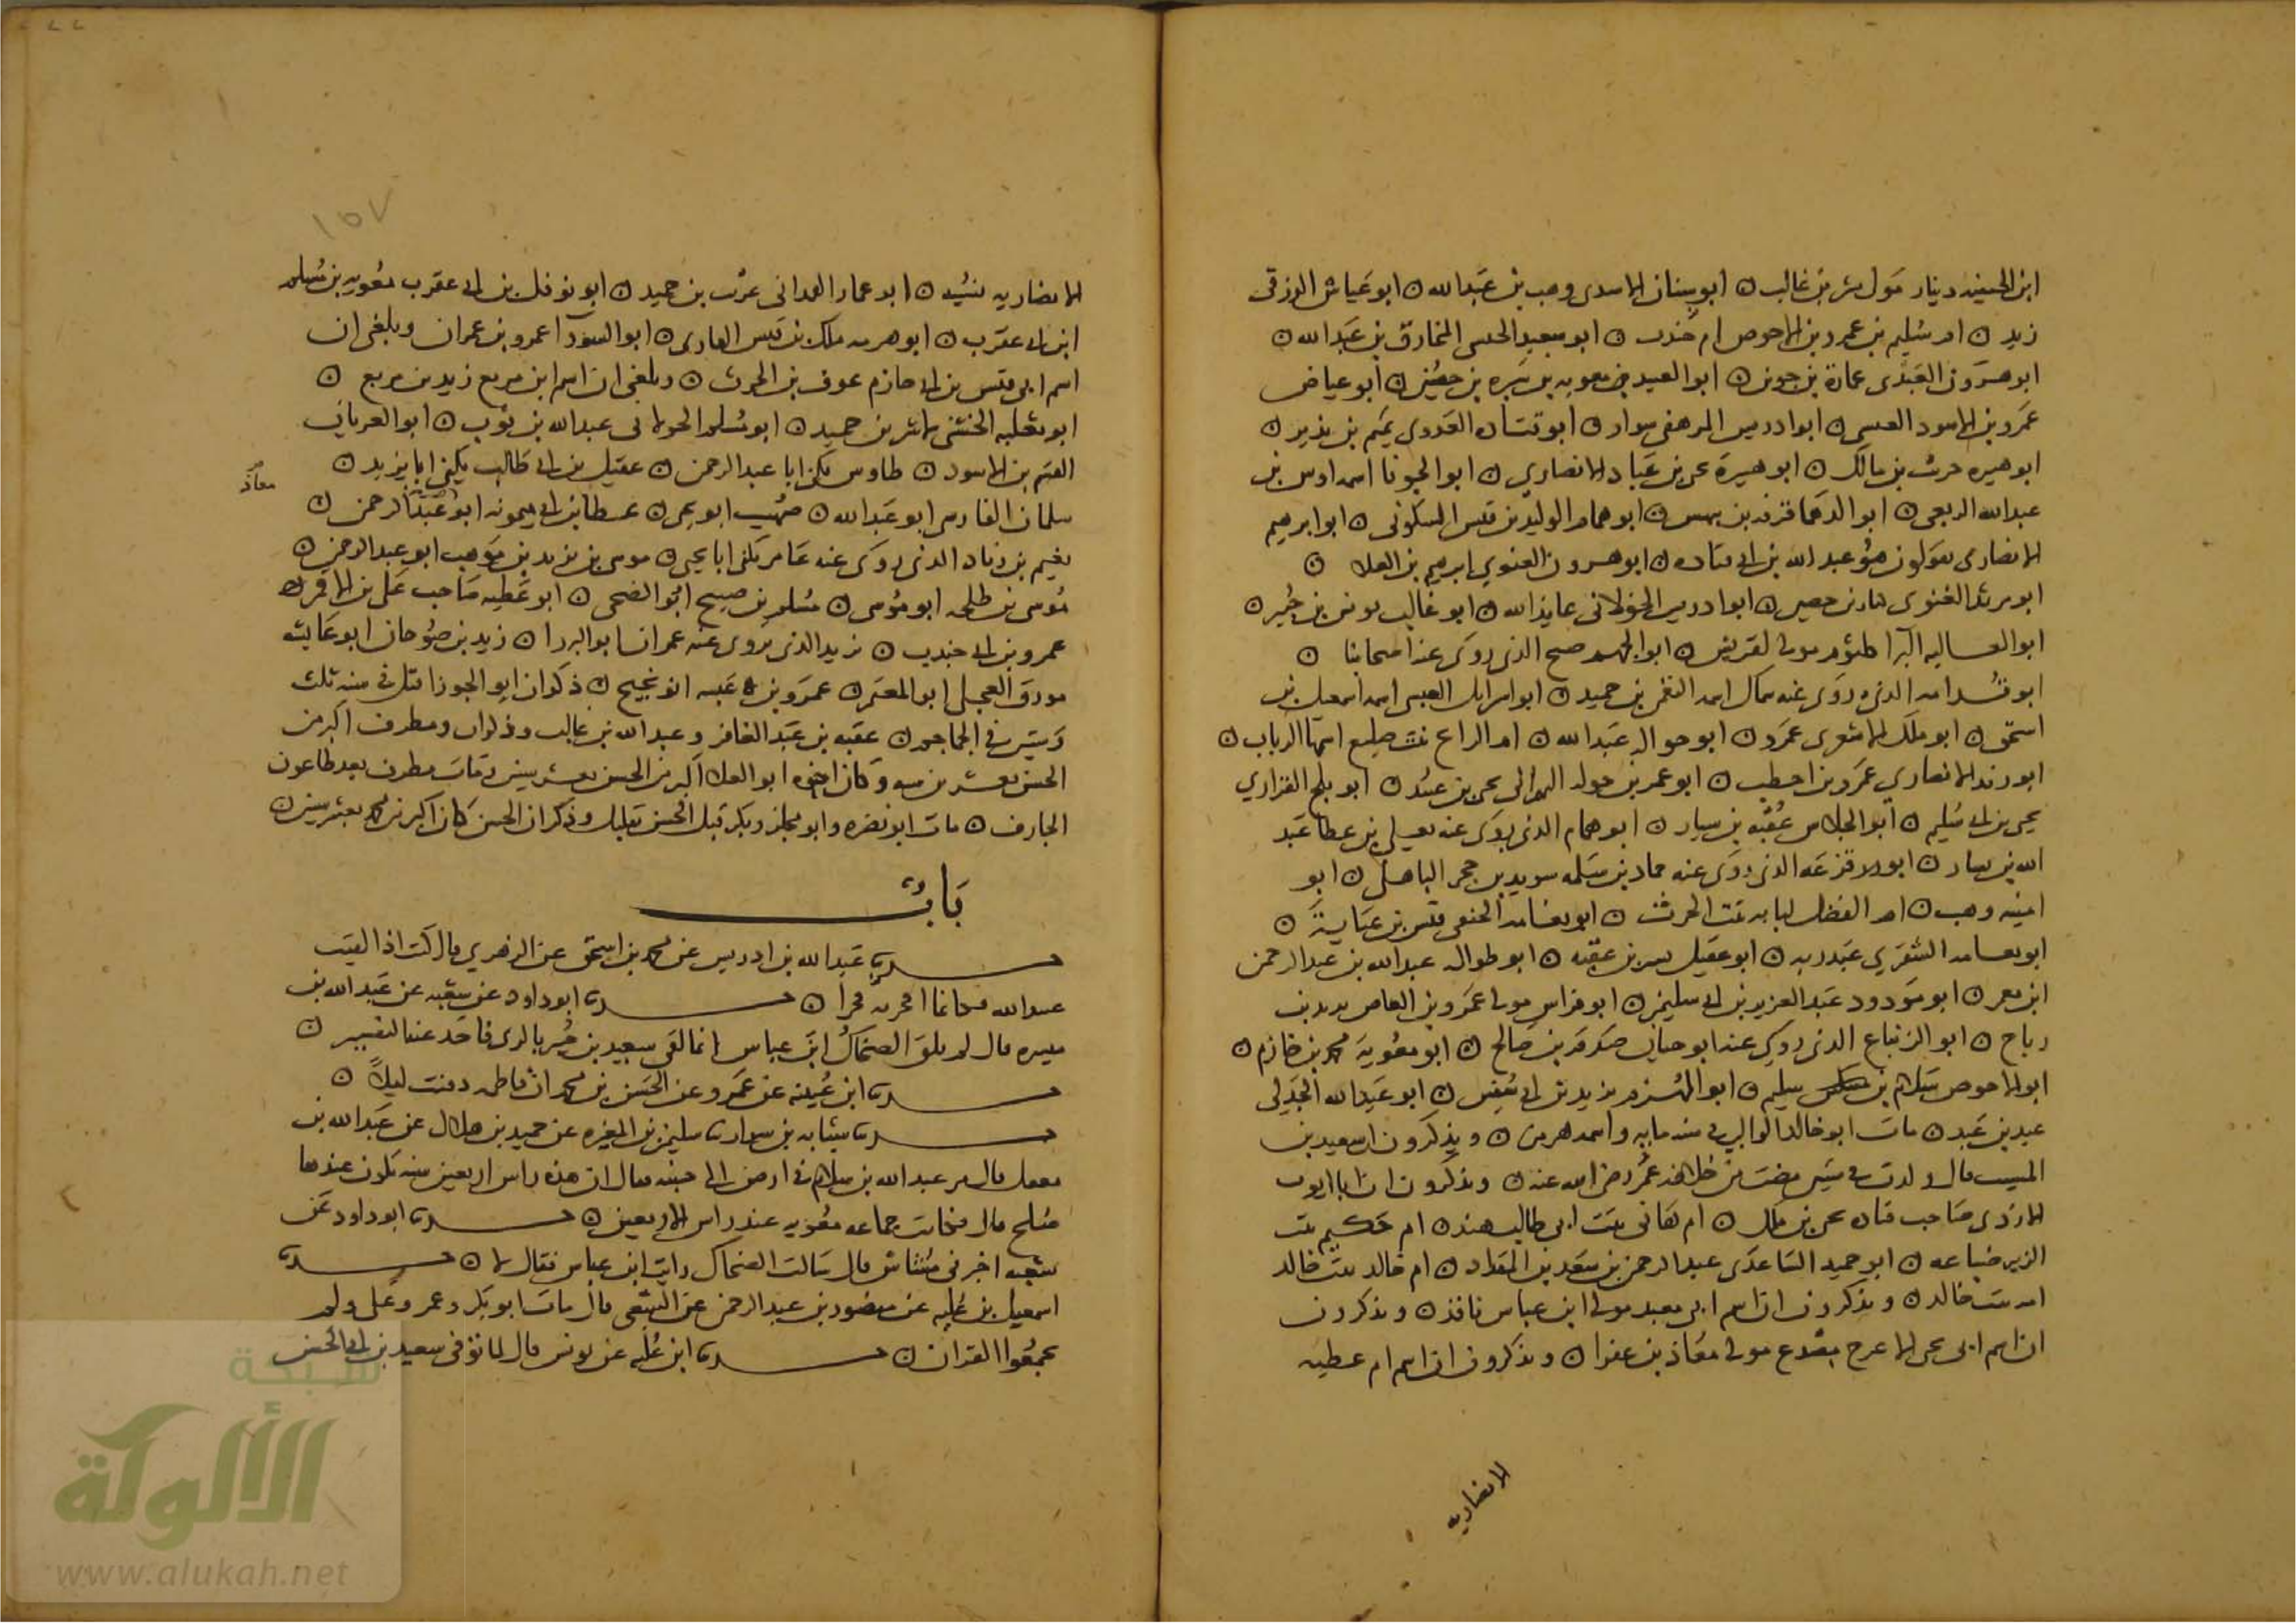 ابو سنان الاسدي وهب بن عبد الله ه ابو عياش الزرقي
زيد ه ام سليم بن عمرو بن الاحوص ام جندب ه ابو سعيد المخارق بن عبد الله ه
ابو هرون العبدي عمارة بن جوين ه ابو العبيدين معويه بن سبره بن حصين ه ابو عياض
عمرو بن الاسود العبسي ه ابو ادريس المرهبي سوار ه ابو قتاده العدوي تميم بن نذير ه
ابو هبيره حرث بن مالك ه ابو هبيرة يحيى بن عباد الانصاري ه ابو الجوزا اسمه اوس بن
عبد الله الربعي ه ابو الدهما قرفه بن بهيس ه ابو همام الوليد بن قيس السكوني ه ابو ابرهيم
الانصاري يقولون هو عبد الله بن ابي قتاده ه ابو هرون الغنوي ابرهيم بن العلا ه
ابو مرثد الغنوي كناز بن حصين ه ابو ادريس الخولاني عايذ الله ه ابو غالب يونس بن جبير ه
ابو العاليه البرا كلثوم مولى لقريش ه ابو صبيح الذي روى عنه اصحابنا ه
الذي روى عنه سماك اسمه النضر بن حميد ه ابو اسرايل العبسي اسمه اسمعيل بن
اسحق ه ابو ملك الاشعري عمرو ه ابو حواله عبد الله ه ام الرايح بنت صليع اسمها الرباب ه
ابو زيد الانصاري عمرو بن اخطب ه ابو عمر يحيى بن عبيد ه ابو بلج الفزاري
يحيى بن ابي سليم ه ابو الجلاس عقبه بن سيار ه ابو همام الذي روى عنه يعلى بن عطا عبد
الله بن يسار ه ابو قزعه الذي روى عنه حماد بن سلمه سويد بن حجر الباهلي ه ابو
امينه وهب ه ام الفضل لبابه بنت الحرث ه ابو نعامه الحنفي قيس بن عباية ه
ابو نعامه الشقري عبد ربه ه ابو عقيل بشر بن عقبه ه ابو طواله عبد الله بن عبد الرحمن
ابن معمر ه ابو مودود عبد العزيز بن ابي سليمن ه ابو فراس مولى عمرو بن العاص يزيد بن
رباح ه ابو الزنباع الذي روى عنه ابو حيان صدقه بن صالح ه ابو معوية محمد بن خازم ه
ابو الاحوص سلام بن سليم ه ابو المهزم يزيد بن ابي سفين ه ابو عبد الله الجدلي
عبد بن عبد ه مات ابو خالد الوالبي في سنه مايه واسمه هرمز ه ويذكرون ان سعيد بن
المسيب قال ولدت لسنتين مضت من خلافه عمر رضي الله عنه ه ويذكرون ان ابا ايوب
الازدي صاحب قتاده يحيى بن ملك ه ام هانى بنت ابي طالب هند ه ام حكيم بنت
الزبير ضباعه ه ابو حميد الساعدي عبد الرحمن بن سعد بن المنذر ه ام خالد بنت خالد
امه بنت خالد ه ويذكرون ان اسم ابي معبد مولى ابن عباس نافذ ه ويذكرون
ان اسم ابي يحيى الاعرج مصدع مولى معاذ بن عفرا ه ويذكرون ان اسم ام عطيه
الانصاريه
١٥٧
الانصاريه نسيبه ه ابو عمار الهمداني عريب بن حميد ه ابو نوفل بن ابي عقرب معويه بن مسلم
ابن ابي عقرب ه ابو ملك بن قيس ه ابو السودا عمرو بن عمران وبلغني ان
اسم ابي قيس بن ابي حازم عوف بن الحرث ه وبلغني ان اسم ابن مربع زيد بن مربع ه
ابو ثعلبه الخشني لاشر بن حميد ه ابو مسلم الخولاني عبد الله بن ثوب ه ابو العريان
الهيثم بن الاسود ه طاوس يكنى ابا عبد الرحمن ه عقيل بن ابي طالب يكنى ابا يزيد ه
سلمان الفارسي ابو عبد الله ه صهيب ابو يحيى ه عطا بن ابي ميمونه ابو عبد الرحمن ه
معاذ
نعيم بن دجاجه الذي روى عنه عامر يكنى ابا يحيى ه موسى بن يزيد بن موهب ابو عبد الرحمن ه
موسى بن طلحه ابو موسى ه مسلم بن صبيح ابو الضحى ه ابو عطيه صاحب علي بن الاقمر
عمرو بن ابي جندب ه يزيد الذي يروي عنه عمران ابو البردا ه زيد بن صوحان ابو عايشه
مورق العجلي ابو المعتمر ه عمرو بن عبسه ابو نجيح ه ذكوان ابو الجوزا قتل في سنه ثلث
وثمانين في الجماجم ه عقبه بن عبد الغافر وعبد الله بن غالب وذكوان ومطرف اكبر من
الحسن بعشرين سنه وكان اخوه ابو العلا اكبر من الحسن بعشر سنين مات مطرف بعد طاعون
الجارف ه مات ابو نضره وابو مجلز وبكر قبل الحسن بقليل وذكر ان الحسن كان اكبر من محمد بعشر سنين ه
باب
حدثنا عبد الله بن ادريس عن محمد بن اسحق عن الزهري قال كنت اذا لقيت
عبيد الله فكانما افجر به فجرا ه حدثنا ابو داود عن شعبه عن عبد الملك بن
ميسره قال لم يلق الضحاك ابن عباس انما لقي سعيد بن جبير بالري فاخذ عنه التفسير ه
حدثنا ابن عيينه عن عمرو عن الحسن بن محمد ان فاطمه دفنت ليلا ه
حدثنا شبابه بن سوار حدثنا سليمن بن المغيره عن حميد بن هلال عن عبد الله بن
معقل قال مر عبد الله بن سلام في ارض الى جنبه فقال ان هذه راس اربعين سنه يكون عندها
صلح قال فكانت جماعه معويه عند راس الاربعين ه حدثنا ابو داود عن
شعبه اخبرني مشاش قال سالت الضحاك رايت ابن عباس فقال لا ه حدثنا
اسمعيل بن عليه عن منصور بن عبد الرحمن عن الشعبي قال مات ابو بكر وعمر وعلي ولم
يجمعوا القران ه حدثنا ابن عليه عن يونس قال لما توفي سعيد بن ابي الحسن
شبكة
الألوكة
www.alukah.net